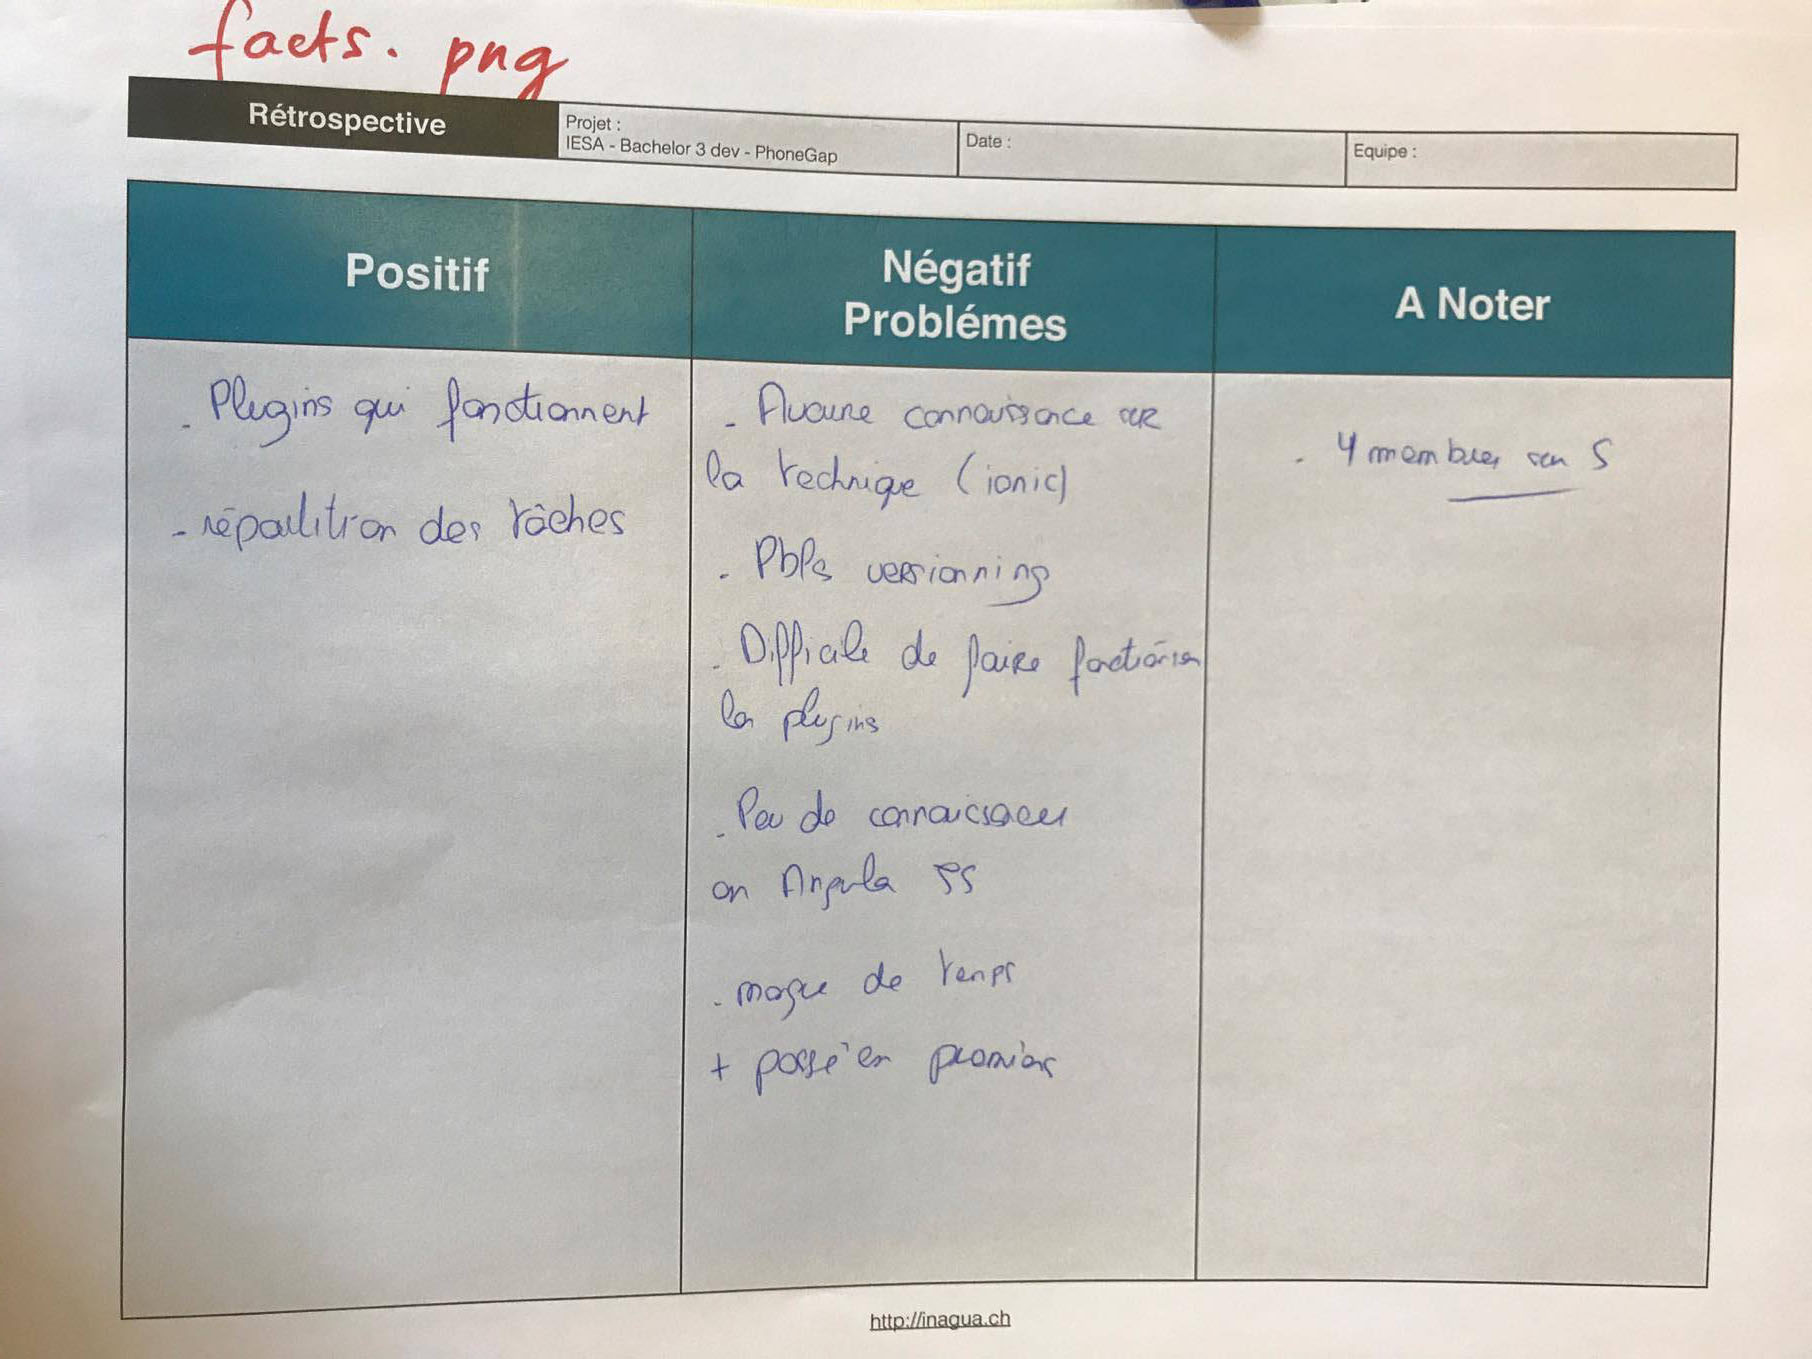 facts.png
Rétrospective
Projet :
IESA - Bachelor 3 dev - PhoneGap
Date :
Equipe :
Positif
Négatif
Problémes
A Noter
. Plugins qui fonctionnent
- répartition des tâches
- Aucune connaissance sur
la technique (ionic)
. Pbls versionning
. Difficile de faire
les plugins
. Peu de connaissances
en Angula JS
. maque de temps
+ passé en premier
. 4 membres sur 5
http://inagua.ch